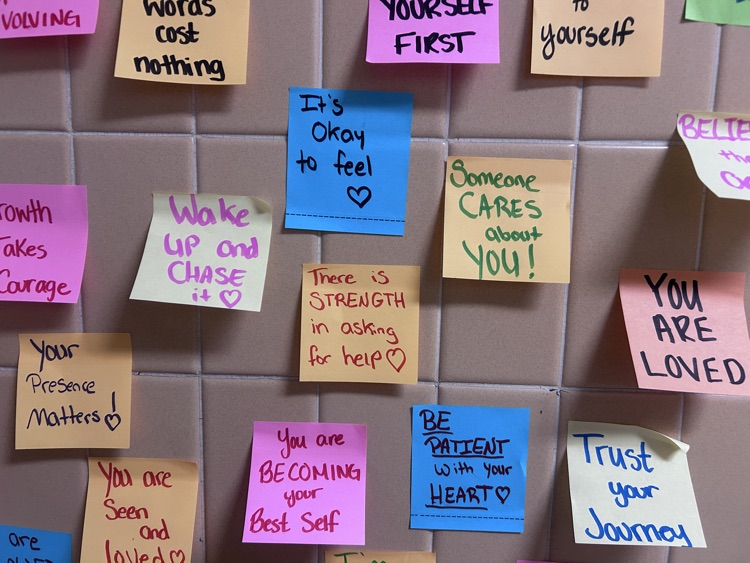 VOLVING
Words
cost
nothing
YOURSELF
FIRST
to
yourself
It's
Okay
to feel
Someone
CARES
about
YOU!
Takes
Courage
Wake
UP and
CHASE
it
There is
STRENGTH
in asking
for help
YOU
ARE
LOVED
Your
Presence
Matters!
You are
BECOMING
your
Best Self
BE
PATIENT
with your
HEART
Trust
your
Journey
You are
Seen
and
loved
are